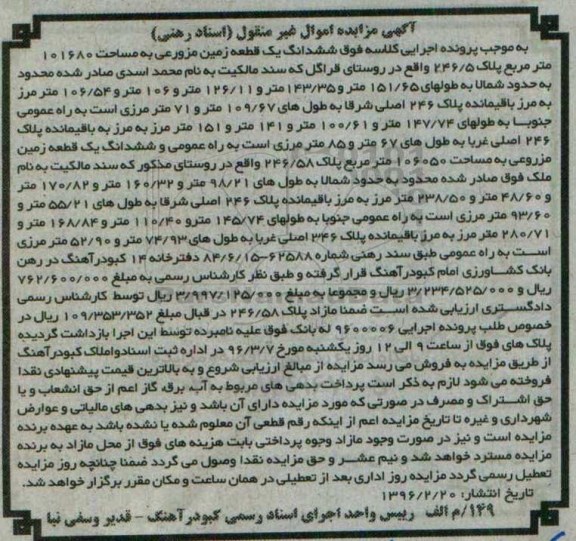 آگهی مزایده اموال غیر منقول (اسناد رهنی)
به موجب پرونده اجرایی کلاسه فوق ششدانگ یک قطعه زمین مزروعی به مساحت ۱۰۱۶۸۰
متر مربع پلاک ۲۴۶/۵ واقع در روستای قراگل که سند مالکیت به نام محمد اسدی صادر شده محدود
به حدود شمالا به طولهای ۱۵۱/۶۵ متر و ۱۴۳/۳۵ متر و ۱۲۶/۱۱ متر و ۱۰۶ متر و ۱۰۶/۵۴ متر مرز
به مرز باقیمانده پلاک ۲۴۶ اصلی شرقا به طول های ۱۰۹/۶۷ متر و ۷۱ متر مرزی است به راه عمومی
جنوبا به طولهای ۱۴۷/۷۴ متر و ۱۰۰/۶۱ متر و ۱۴۱ متر و ۱۵۱ متر مرز به مرز به باقیمانده پلاک
۲۴۶ اصلی غربا به طول های ۶۷ متر و ۸۵ متر مرزی است به راه عمومی و ششدانگ یک قطعه زمین
مزروعی به مساحت ۱۰۶۰۵۰ متر مربع پلاک ۲۴۶/۵۸ واقع در روستای مذکور که سند مالکیت به نام
ملک فوق صادر شده محدود به حدود شمالا به طول های ۹۸/۲۱ متر و ۱۶۰/۳۲ متر و ۱۷۰/۸۲ متر
و ۴۸/۶۰ متر و ۲۳۸/۵۰ متر مرز به مرز باقیمانده پلاک ۲۴۶ اصلی شرقا به طول های ۵۵/۲۱ متر و
۹۳/۶۰ متر مرزی است به راه عمومی جنوبا به طولهای ۱۴۵/۷۴ متر و ۱۱۰/۴۰ متر و ۱۶۸/۸۴ متر و
۲۸۰/۷۱ متر مرز به مرز باقیمانده پلاک ۳۴۶ اصلی غربا به طول های ۷۴/۹۳ متر و ۵۲/۹۰ متر مرزی
است به راه عمومی طبق سند رهنی شماره ۶۲۵۸۸-۸۴/۶/۱۵ دفترخانه ۱۴ کبودرآهنگ در رهن
بانک کشاورزی امام کبودرآهنگ قرار گرفته و طبق نظر کارشناس رسمی به مبلغ ۷۶۲/۶۰۰/۰۰۰
ریال و ۳/۲۳۴/۵۲۵/۰۰۰ ریال و مجموعا به مبلغ ۳/۹۹۷/۱۲۵/۰۰۰ ریال توسط کارشناس رسمی
دادگستری ارزیابی شده است ضمنا مازاد پلاک ۲۴۶/۵۸ در قبال مبلغ ۱۰۹/۳۵۳/۳۵۲ ریال در
خصوص طلب پرونده اجرایی ۹۶۰۰۰۰۶ له بانک فوق علیه نامبرده توسط این اجرا بازداشت گردیده
پلاک های فوق از ساعت ۹ الی ۱۲ روز یکشنبه مورخ ۹۶/۳/۷ در اداره ثبت اسناد و املاک کبودرآهنگ
از طریق مزایده به فروش می رسد مزایده از مبالغ ارزیابی شروع و به بالاترین قیمت پیشنهادی نقدا
فروخته می شود لازم به ذکر است پرداخت بدهی های مربوط به آب، برق، گاز اعم از حق انشعاب و یا
حق اشتراک و مصرف در صورتی که مورد مزایده دارای آن باشد و نیز بدهی های مالیاتی و عوارض
شهرداری و غیره تا تاریخ مزایده اعم از اینکه رقم قطعی آن معلوم شده یا نشده باشد به عهده برنده
مزایده است و نیز در صورت وجود مازاد وجوه پرداختی بابت هزینه های فوق از محل مازاد به برنده
مزایده مسترد خواهد شد و نیم عشر و حق مزایده نقدا وصول می گردد ضمنا چنانچه روز مزایده
تعطیل رسمی گردد مزایده روز اداری بعد از تعطیلی در همان ساعت و مکان مقرر برگزار خواهد شد.
تاریخ انتشار: ۱۳۹۶/۲/۲۰
۱۴۹/م الف رییس واحد اجرای اسناد رسمی کبودرآهنگ - قدیر وسفی نیا